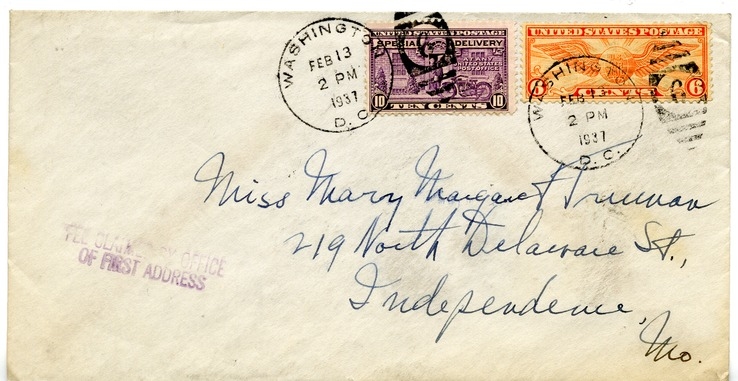 WASHINGTON
FEB 13
2 PM
1937
D. C.
UNITED STATES POSTAGE
SPECIAL DELIVERY
AT ANY
UNITED STATES
POST OFFICE
10 TEN CENTS 10
UNITED STATES POSTAGE
6 CENTS 6
WASHINGTON
FEB 13
2 PM
1937
D. C.
Miss Mary Margaret Truman
219 North Delaware St.,
Independence,
Mo.
FEE CLAIMED BY OFFICE
OF FIRST ADDRESS